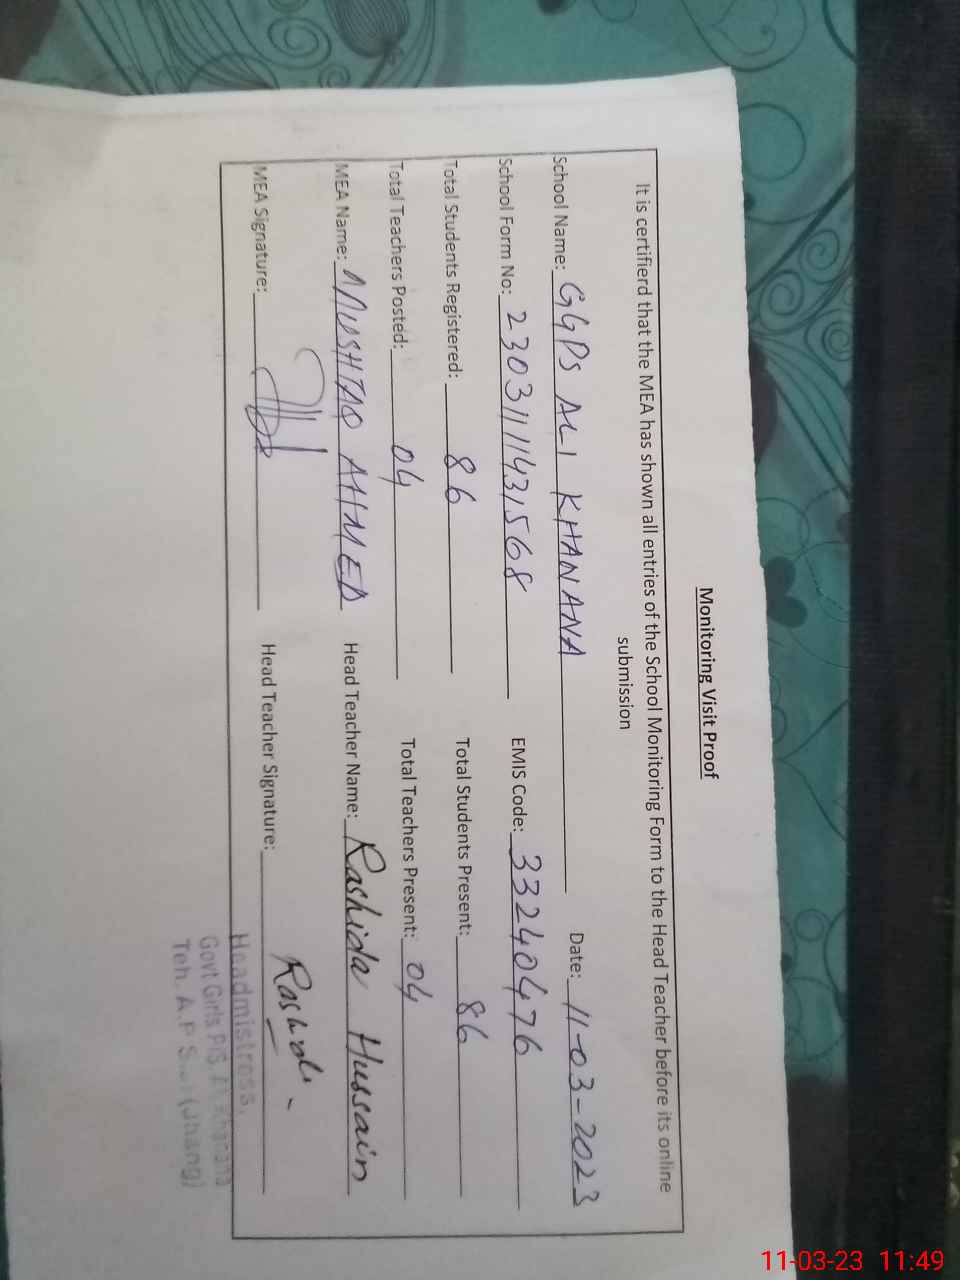 Monitoring Visit Proof
It is certifierd that the MEA has shown all entries of the School Monitoring Form to the Head Teacher before its online
submission
School Name: GGPS ALI KHANANA Date: 11-03-2023
School Form No: 2303111431568 EMIS Code: 33240476
Total Students Registered: 86 Total Students Present: 86
Total Teachers Posted: 04 Total Teachers Present: 04
MEA Name: MUSHTAQ AHMED Head Teacher Name: Rashida Hussain
MEA Signature: Head Teacher Signature: Rashida
Headmistress,
Govt Girls P/S,
Teh. A.P (Jhang)
11-03-23 11:49